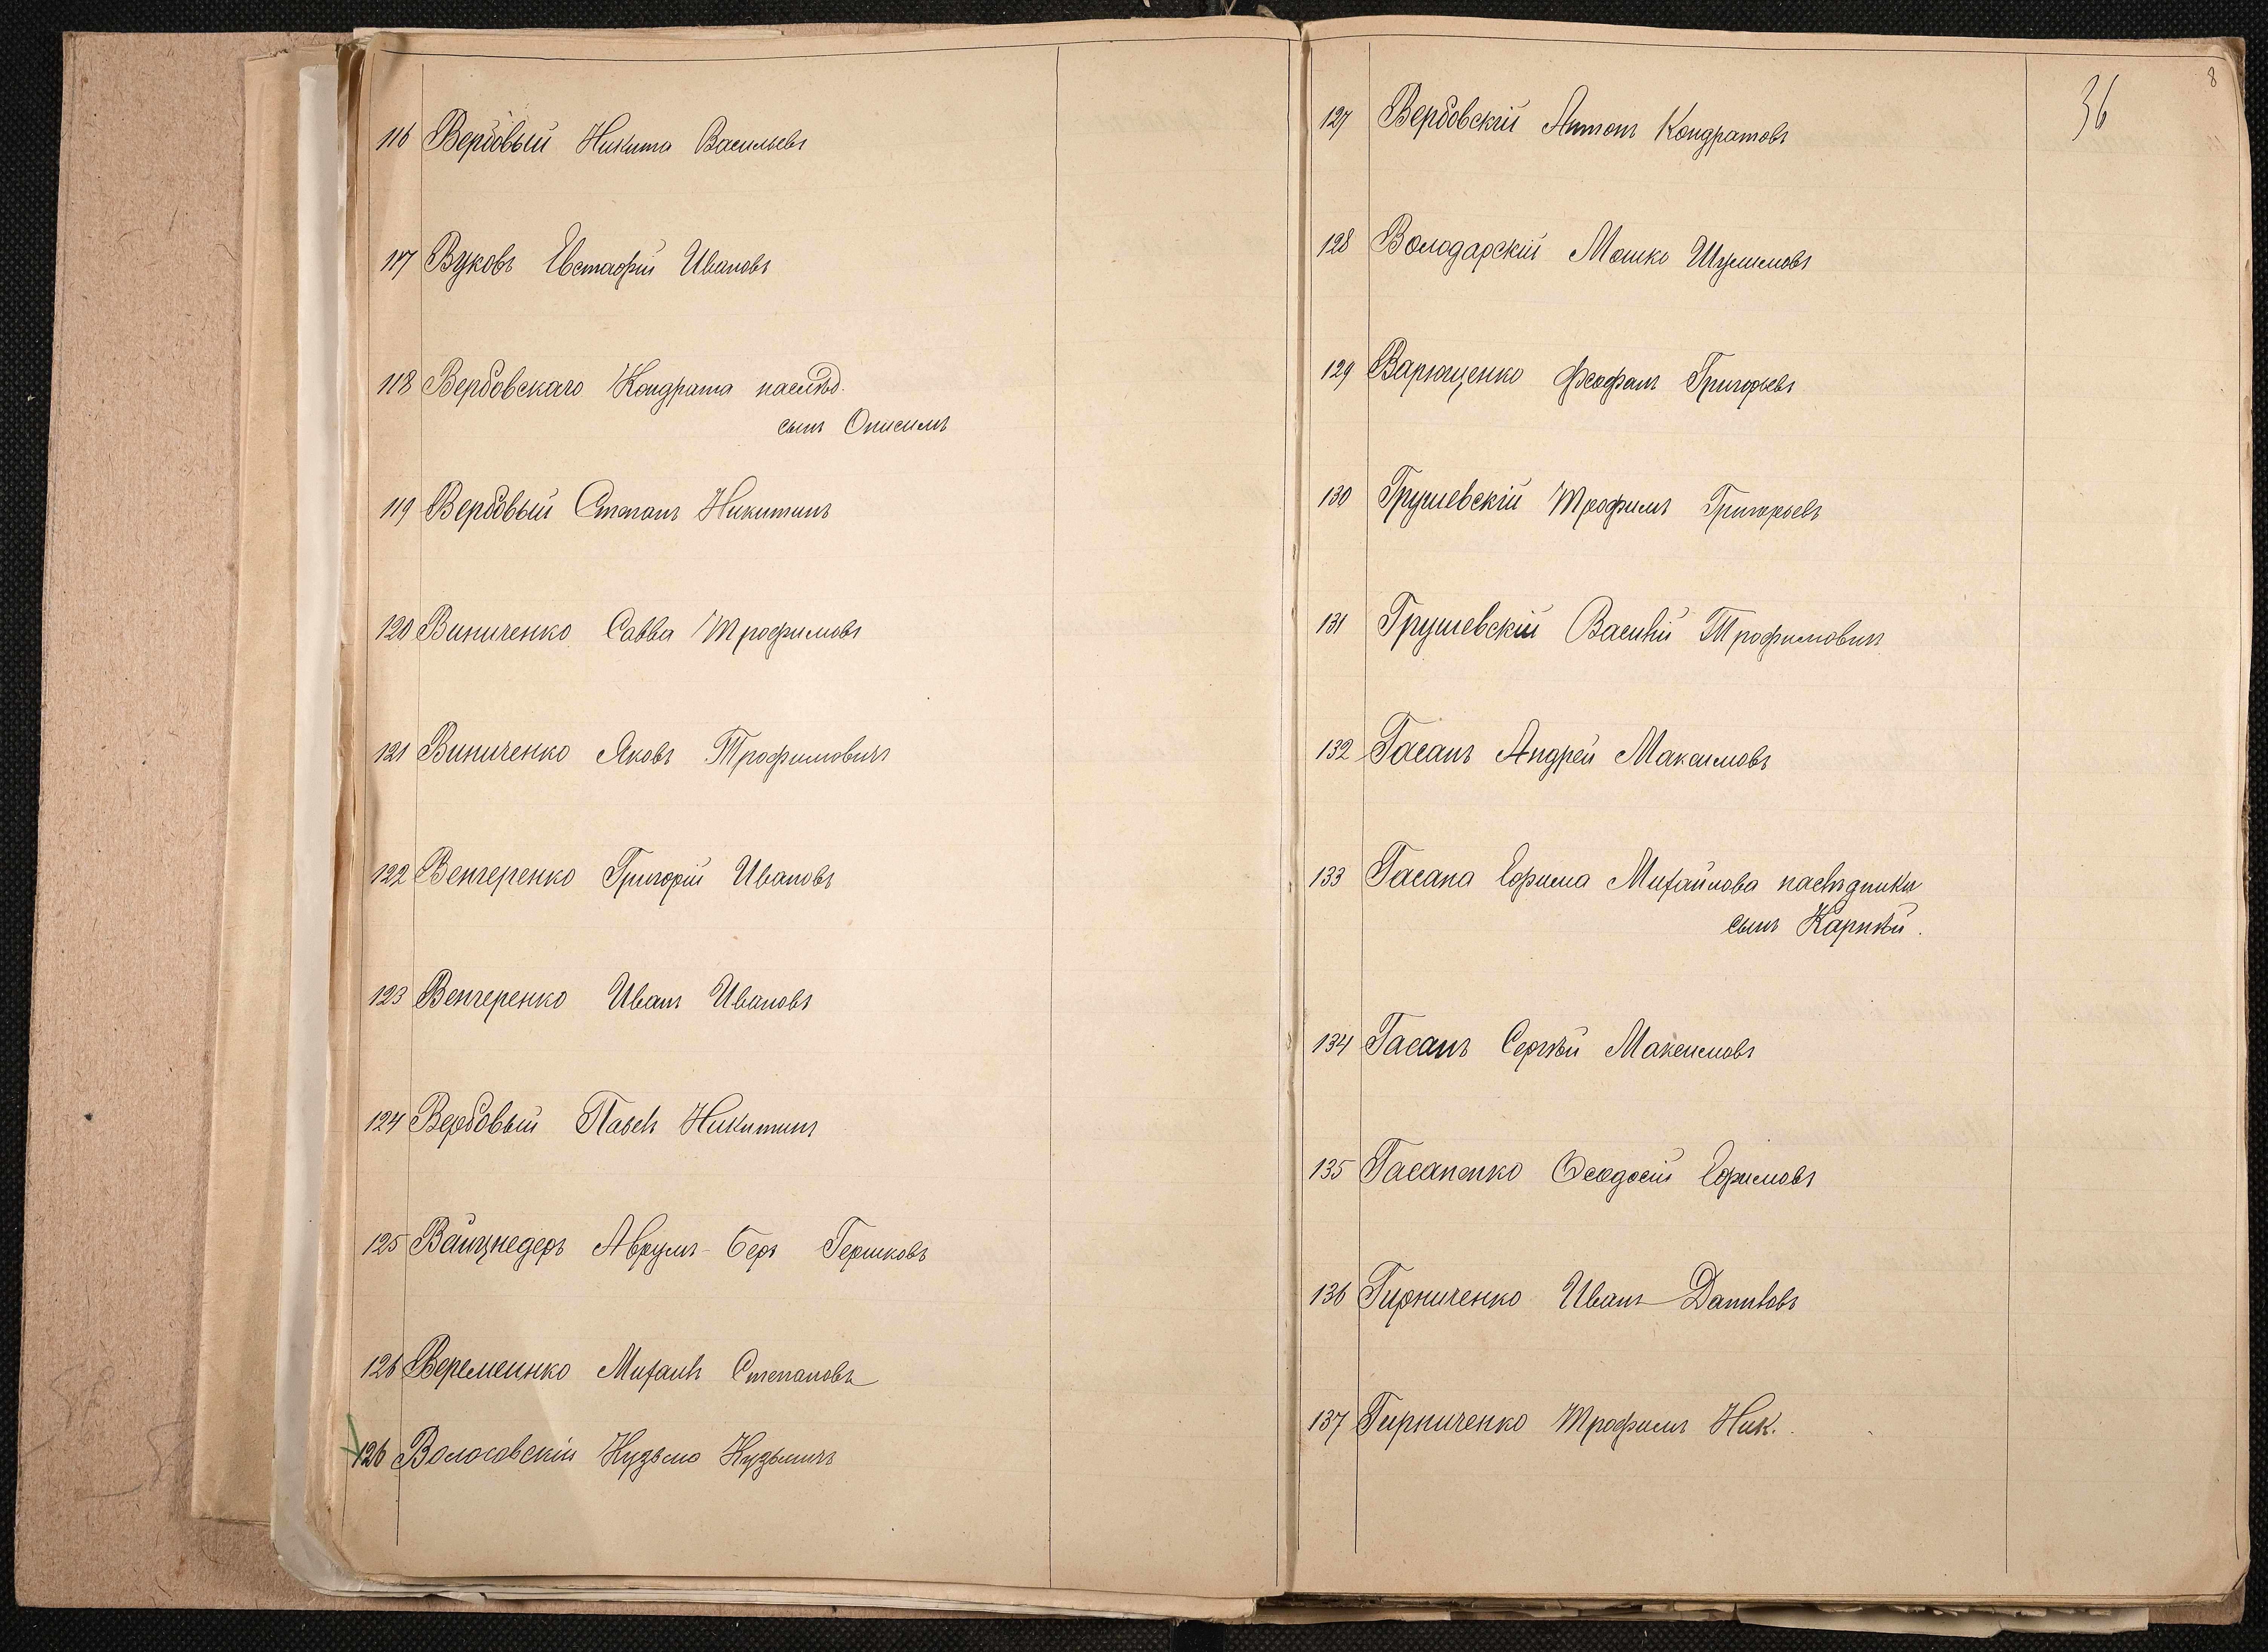 116 Вербовый Никита Васильевъ
117 Вуковъ Евстафій Ивановъ
118 Вербовскаго Кондрата наслѣд.
сынъ Онисимъ
119 Вербовый Степанъ Никитинъ
120 Виниченко Савва Трофимовъ
121 Виниченко Яковъ Трофимовичъ
122 Венгеренко Григорій Ивановъ
123 Венгеренко Иванъ Ивановъ
124 Вербовый Павелъ Никитинъ
125 Вайцнедеръ Аврумъ-Беръ Гершковъ
126 Веремеинко Михаилъ Степановъ
126 Волосовскій Кузьма Кузьмичъ
8
36
127 Вербовскій Антонъ Кондратовъ
128 Володарскій Мошко Шулимовъ
129 Варющенко Феофанъ Григорьевъ
130 Грушевскій Трофимъ Григорьевъ
131 Грушевскій Василій Трофимовичъ
132 Гасанъ Андрей Максимовъ
133 Гасана Ефима Михайлова наслѣдники
сынъ Карпѣй.
134 Гасанъ Сергѣй Максимовъ
135 Гасаненко Ѳеодосій Ефимовъ
136 Гирниченко Иванъ Даниловъ
137 Гирниченко Трофимъ Ник.